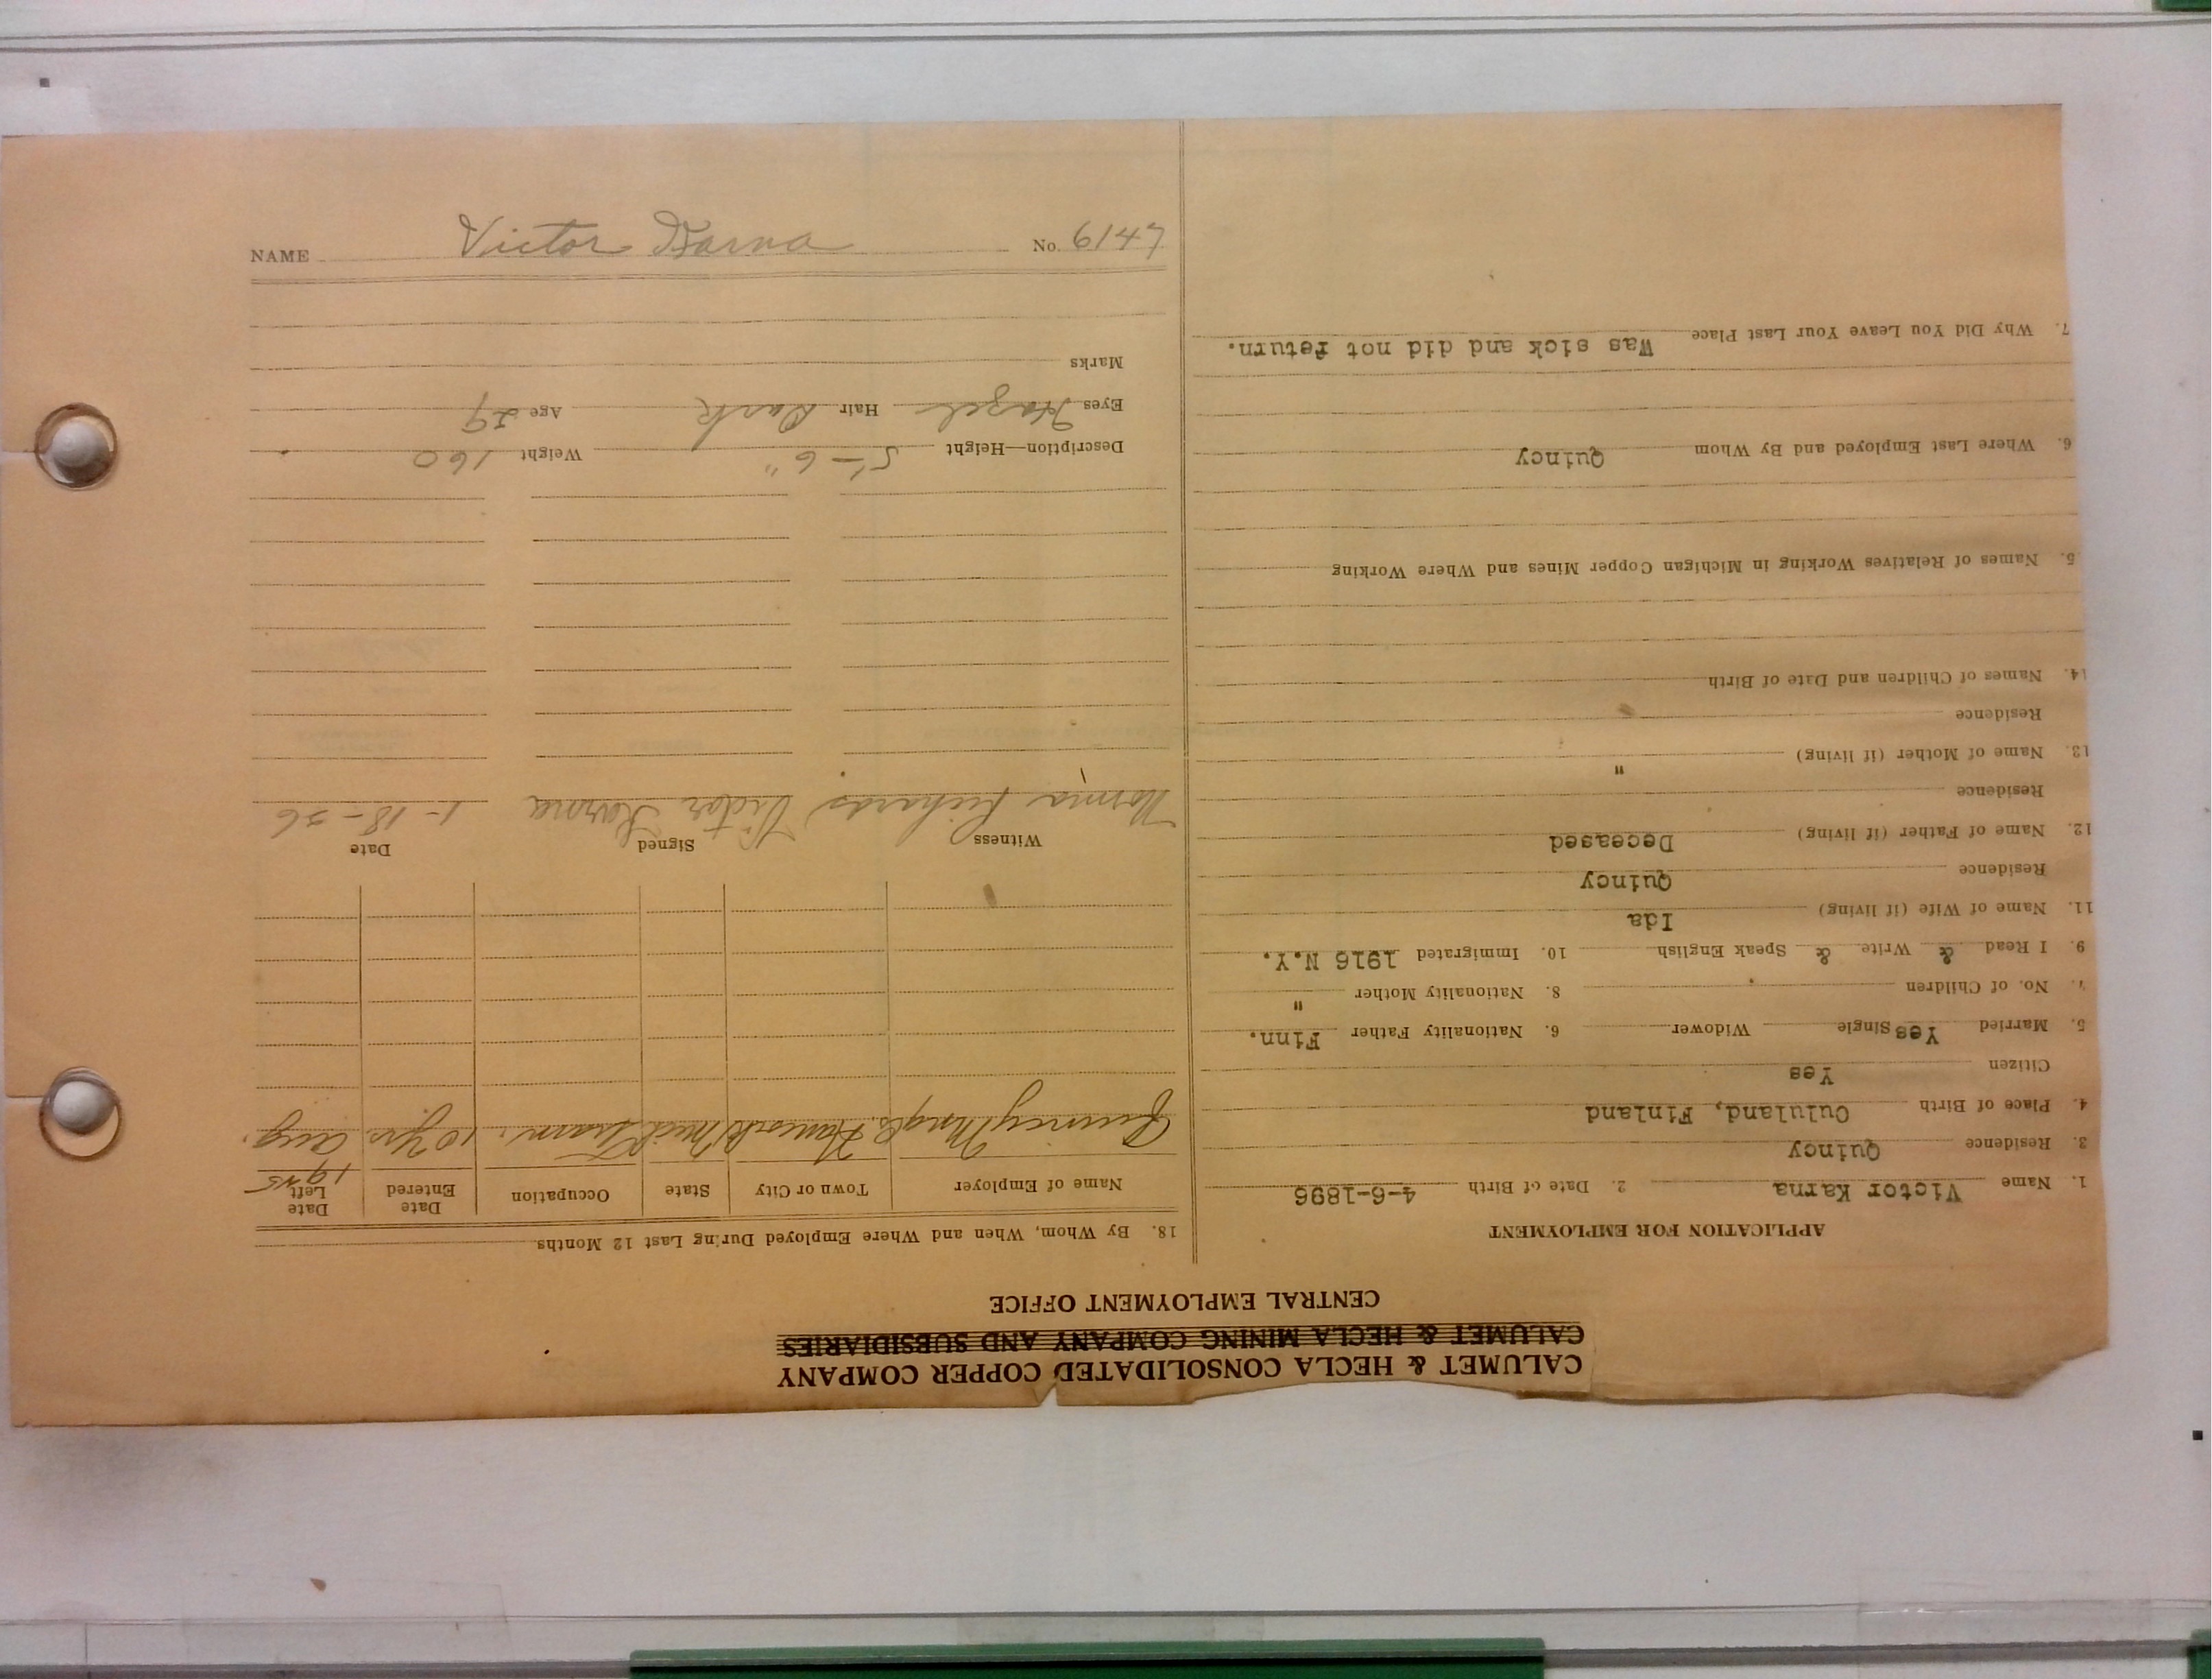 CALUMET & HECLA CONSOLIDATED COPPER COMPANY
CALUMET & HECLA MINING COMPANY AND SUBSIDIARIES
CENTRAL EMPLOYMENT OFFICE
APPLICATION FOR EMPLOYMENT
1. Name Victor Karna 2. Date of Birth 4-6-1896
3. Residence Quincy
4. Place of Birth Oululand, Finland
Citizen Yes
5. Married Yes Single Widower 6. Nationality Father Finn.
7. No. of Children 8. Nationality Mother "
9. I Read & Write & Speak English 10. Immigrated 1916 N.Y.
11. Name of Wife (if living) Ida
Residence Quincy
12. Name of Father (if living) Deceased
Residence
13. Name of Mother (if living) "
Residence
14. Names of Children and Date of Birth
5. Names of Relatives Working in Michigan Copper Mines and Where Working
6. Where Last Employed and By Whom Quincy
7. Why Did You Leave Your Last Place Was sick and did not return.
18. By Whom, When and Where Employed During Last 12 Months
Name of Employer Town or City State Occupation Date Entered Date Left
1945
Quincy Mng Co. Hancock Mich Tram. 10 Yrs. Aug.
Witness Signed Date
Norma Richards Victor Karna 1-18-
Description—Height 5'-6" Weight 160
Eyes Hazel Hair Dark Age
Marks
NAME Victor Karna No. 6147